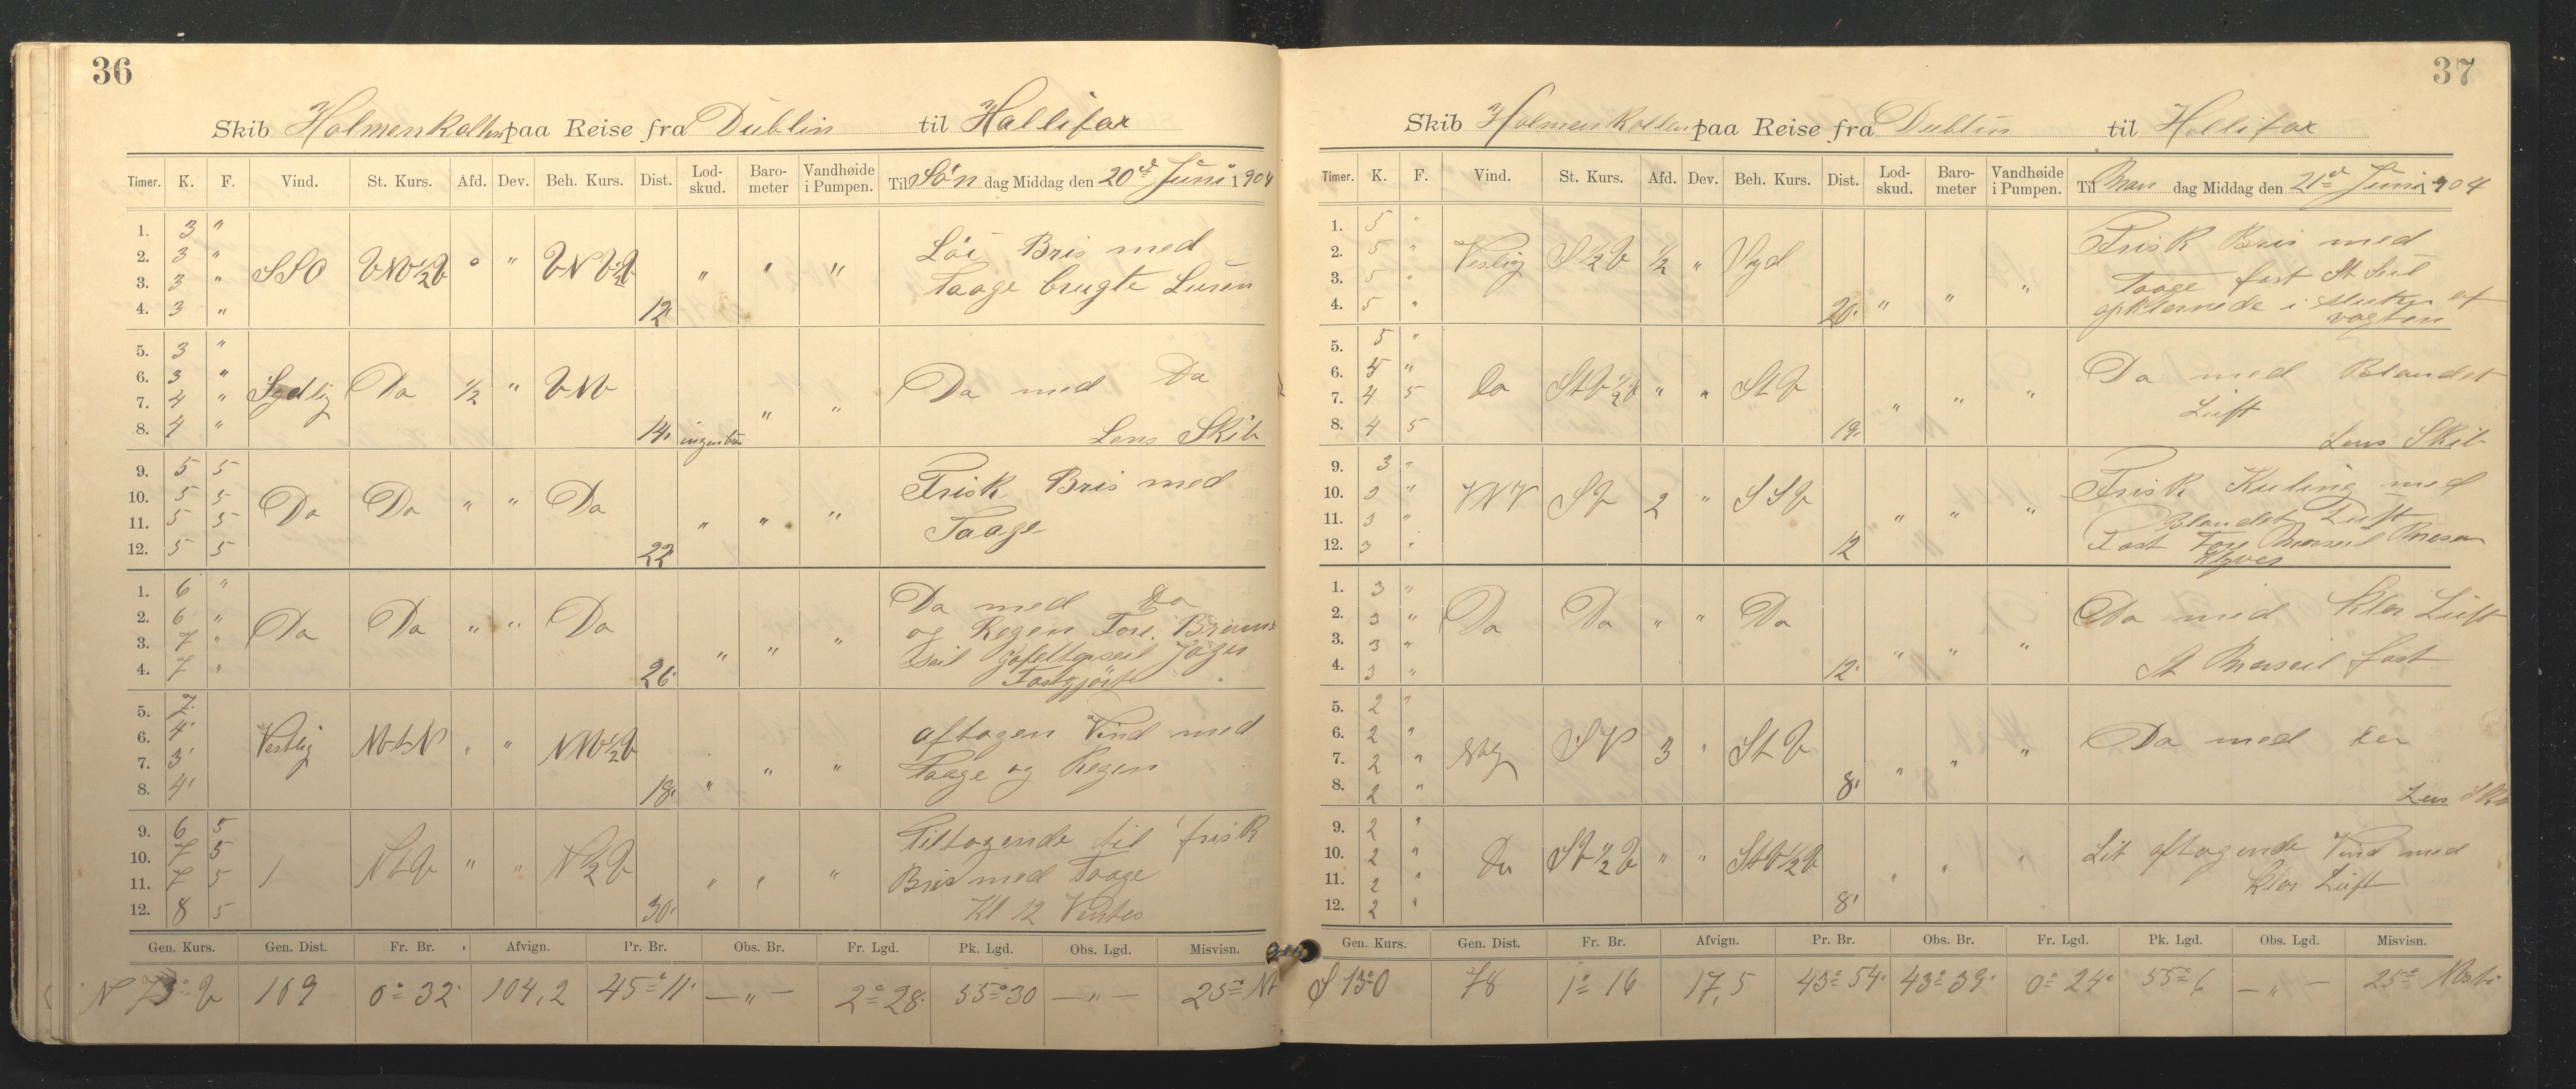 36
Skib Holmenkollen paa Reise fra Dublin til Hallifax
Timer. K. F. Vind. St. Kurs. Afd. Dev. Beh. Kurs. Dist. Lod-skud. Baro-meter Vandhøide i Pumpen. Til Søn dag Middag den 20de Juni 1904
1. 3 "
2. 3 " SSO " " " " Löi Bris med
3. 3 " Taage brugte Luren
4. 3 " 12
5. 3 "
6. 3 " Sydlig Do 1/2 " VNV Do med Do
7. 4 " " "
8. 4 " 14 Lens Skib
9. 5 5 Frisk Bris med
10. 5 5 Do Do " " Do
11. 5 5 " " " Taage
12. 5 5 22
1. 6 " Do med Do
2. 6 " Do Do " " Do og Regen Fore. Bram
3. 7 " " " " Seil Jager
4. 7 " 26 Fastgjort
5. 7
6. 4 Vestlig " " aftagen Vind med
7. 3 " " Taage og Regen
8. 4 18 "
9. 6 5 Tiltagende til frisk
10. 7 5 " " N 1/2 V
11. 7 5 " " " Bris med Taage
12. 8 5 30 Kl 12
Gen. Kurs. Gen. Dist. Fr. Br. Afvign. Pr. Br. Obs. Br. Fr. Lgd. Pk. Lgd. Obs. Lgd. Misvisn.
N 73° V 109 0° 32' 104,2 45° 11' — " — 2° 28' 55° 30 — " — 25°
37
Skib Holmenkollen paa Reise fra Dublin til Hallifax
Timer. K. F. Vind. St. Kurs. Afd. Dev. Beh. Kurs. Dist. Lod-skud. Baro-meter Vandhøide i Pumpen. Til Man dag Middag den 21de Juni 1904
1. 5 " Frisk Bris med
2. 5 " Vestlig S 1/2 V 1/2 " Syd
3. 5 " Taage fast St Seil
4. 5 " 20 " " " opklarnede i slutten af vagten
5. 5 "
6. 5 " Do " " St V Do med Blandet
7. 4 5 " " " Luft
8. 4 5 19 Lens Skib
9. 3 " Frisk Kuling med
10. 3 " VNV SV 2 " SSV
11. 3 " " " " Blandet Luft
12. 3 " 12 Fast Fore Merseil Mesan Klyver
1. 3 "
2. 3 " Do Do " " Do Do med klar Luft
3. 3 " " " "
4. 3 " 12 St Merseil fast
5. 2 "
6. 2 " SV 3 " St V Do med Do
7. 2 " " " "
8. 2 " 8 Lens Skib
9. 2 "
10. 2 " Do " " Lit aftagende Vind med
11. 2 " " " " klar Luft
12. 2 " 8
Gen. Kurs. Gen. Dist. Fr. Br. Afvign. Pr. Br. Obs. Br. Fr. Lgd. Pk. Lgd. Obs. Lgd. Misvisn.
S 13° O 78 1° 16 17,5 43° 54' 43° 39' 0° 24' 55° 6 — " — 25°